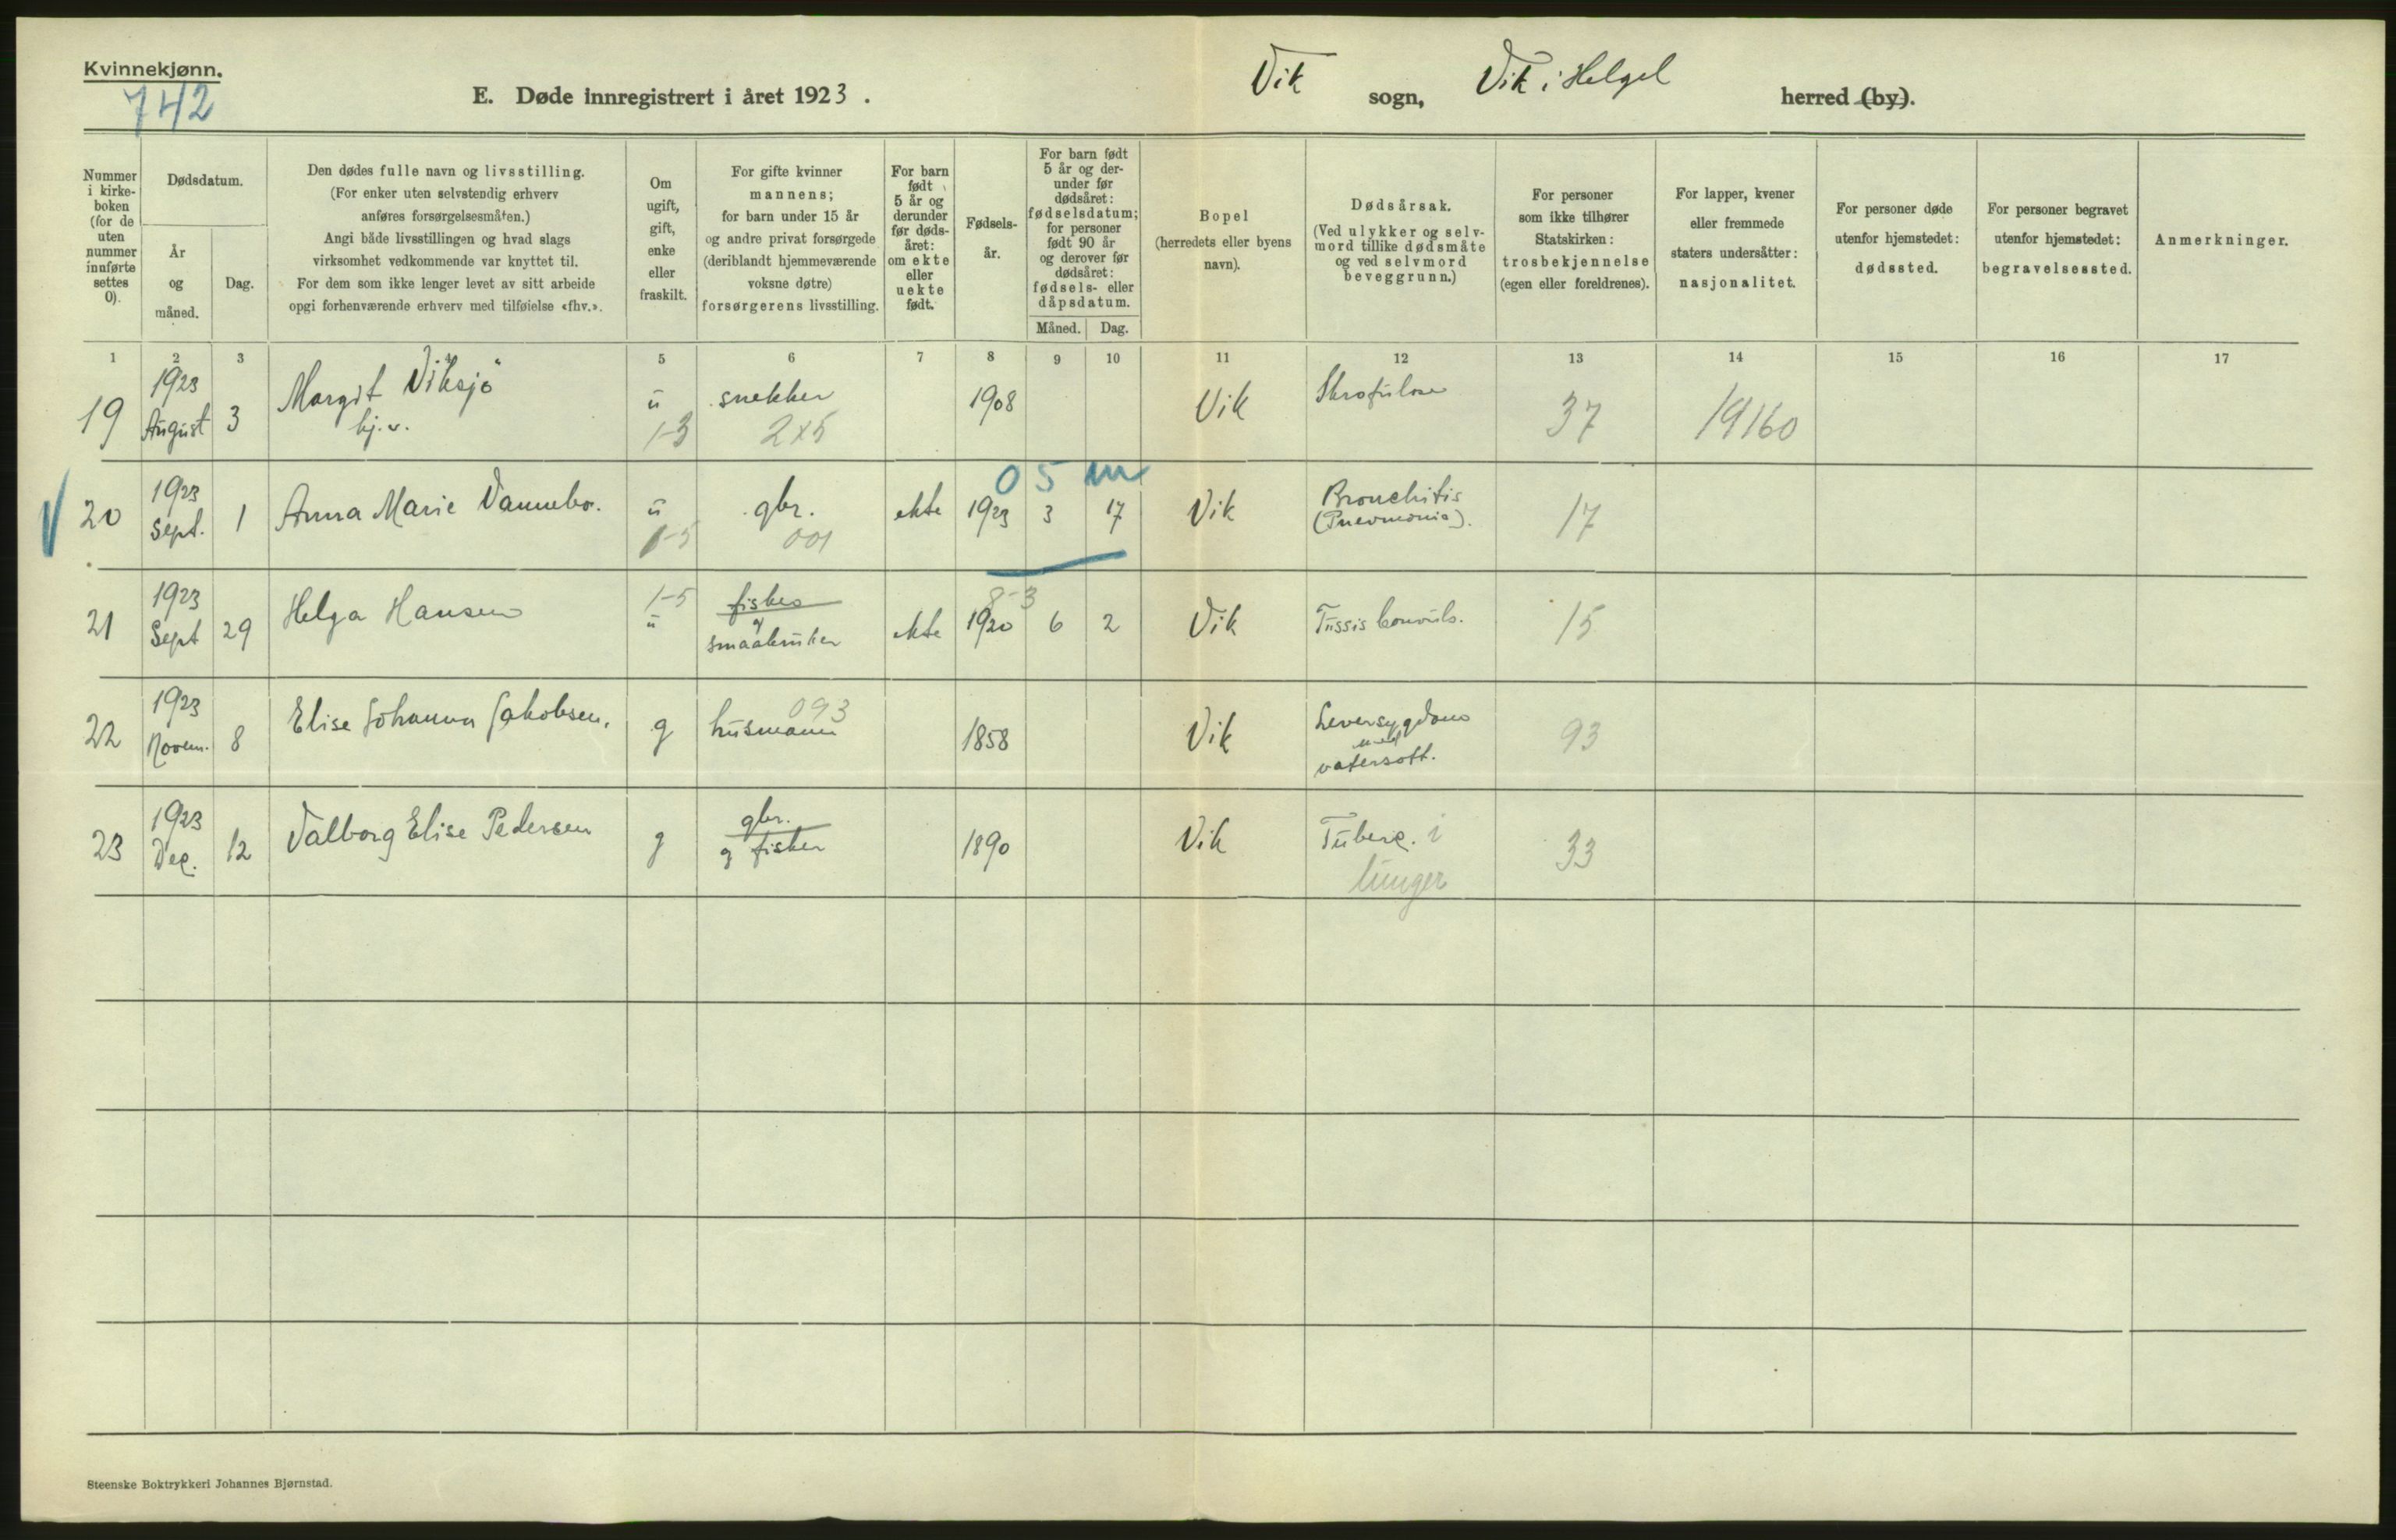 Kvinnekjønn.
742
E. Døde innregistrert i året 1923.
Vik sogn, Vik i Helgel herred (by).
Nummer i kirke- boken (for de uten nummer innførte settes 0).
Dødsdatum.
År og måned.
Dag.
Den dødes fulle navn og livsstilling.
(For enker uten selvstendig erhverv
anføres forsørgelsesmåten.)
Angi både livsstillingen og hvad slags
virksomhet vedkommende var knyttet til.
For dem som ikke lenger levet av sitt arbeide
opgi forhenværende erhverv med tilføielse «fhv.».
Om ugift, gift, enke eller fraskilt.
For gifte kvinner
mannens;
for barn under 15 år
og andre privat forsørgede
(deriblandt hjemmeværende
voksne døtre)
forsørgerens livsstilling.
For barn født 5 år og derunder før døds- året: om ekte eller uekte født.
Fødsels- år.
For barn født 5 år og der- under før dødsåret: fødselsdatum; for personer født 90 år og derover før dødsåret: fødsels- eller dåpsdatum.
Måned. Dag.
Bopel
(herredets eller byens
navn).
Dødsårsak.
(Ved ulykker og selv-
mord tillike dødsmåte
og ved selvmord
beveggrunn.)
For personer
som ikke tilhører
Statskirken:
trosbekjennelse
(egen eller foreldrenes).
For lapper, kvener
eller fremmede
staters undersåtter:
nasjonalitet.
For personer døde
utenfor hjemstedet:
dødssted.
For personer begravet
utenfor hjemstedet:
begravelsessted.
Anmerkninger.
1 2 3 4 5 6 7 8 9 10 11 12 13 14 15 16 17
19 1923 August 3 Margit Viksjö hj.v. u 1-3 snekker 2x5 1908 Vik Skrofulose 37 19160
05m
20 1923 Sept. 1 Anna Marie Vannebo. u 1-5 gbr. 001 ekte 1923 3 17 Vik Bronchitis (Pneumonia). 17
21 1923 Sept 29 Helga Hansen 1-5 u fisker og smaabruker ekte 8-3 1920 6 2 Vik Tussis Convuls. 15
22 1923 Novem. 8 Elise Johanna Jakobsen. g husmann 093 1858 Vik Leversygdom med vatersott. 93
23 1923 Dec. 12 Valborg Elise Pedersen g gbr. og fisker 1890 Vik Tuberc. i lunger 33
Steenske Boktrykkeri Johannes Bjørnstad.